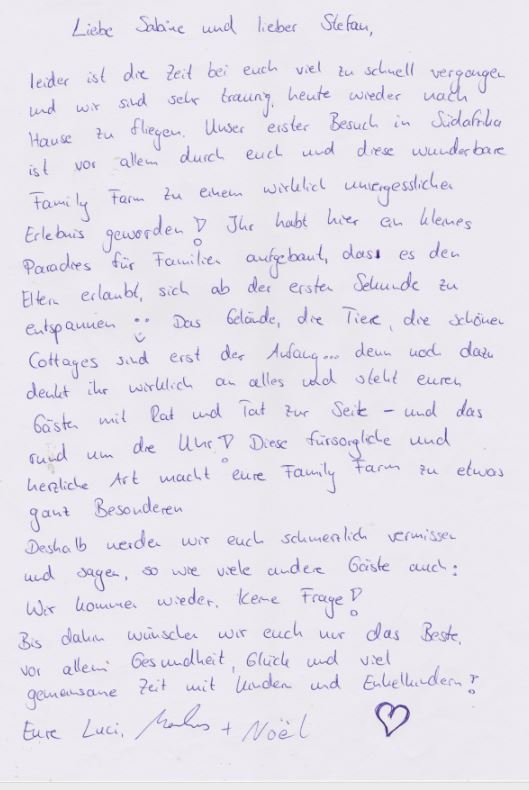 Liebe Sabine und lieber Stefan,
leider ist die Zeit bei euch viel zu schnell vergangen
und wir sind sehr traurig, heute wieder nach
Hause zu fliegen. Unser erster Besuch in Südafrika
ist vor allem durch euch und diese wunderbare
Family Farm zu einem wirklich unvergesslichen
Erlebnis geworden! Ihr habt hier ein kleines
Paradies für Familien aufgebaut, dass es den
Eltern erlaubt, sich ab der ersten Sekunde zu
entspannen :) Das Gelände, die Tiere, die schönen
Cottages sind erst der Anfang... denn noch dazu
denkt ihr wirklich an alles und steht euren
Gästen mit Rat und Tat zur Seite - und das
rund um die Uhr! Diese fürsorgliche und
herzliche Art macht eure Family Farm zu etwas
ganz Besonderen
Deshalb werden wir euch schmerzlich vermissen
und sagen, so wie viele andere Gäste auch:
Wir kommen wieder. Keine Frage!
Bis dahin wünschen wir euch nur das Beste,
vor allem Gesundheit, Glück und viel
gemeinsame Zeit mit Kindern und Enkelkindern!
Eure Luci, Markus + Noël ♡